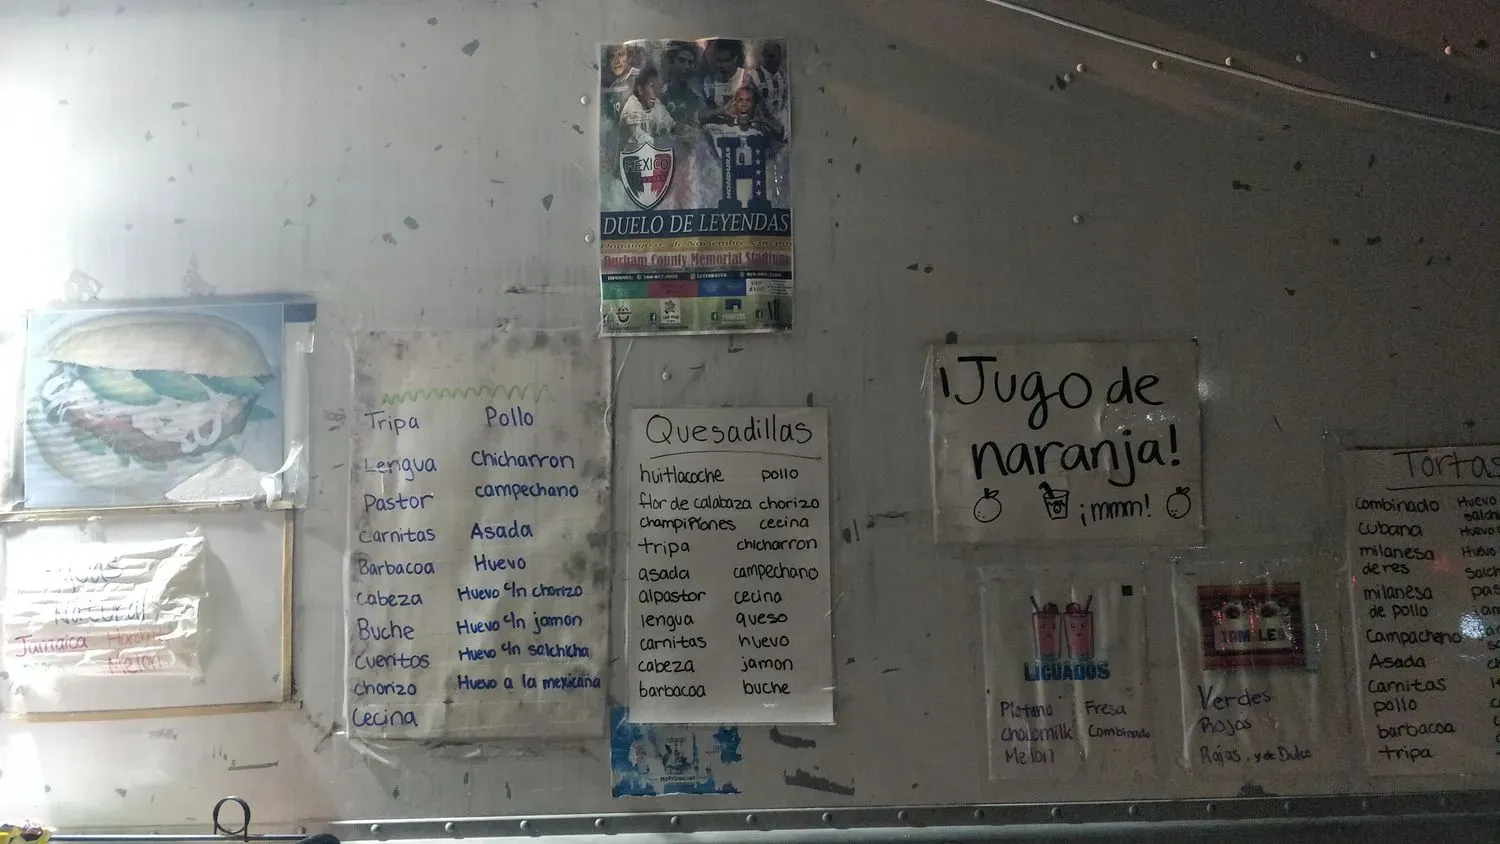 MEXICO
HONDURAS
DUELO DE LEYENDAS
Durham County Memorial Stadium
Tripa Pollo
Lengua Chicharron
Pastor campechano
Carnitas Asada
Barbacoa Huevo
Cabeza Huevo c/n chorizo
Buche Huevo c/n jamon
Cueritos Huevo c/n salchicha
Chorizo Huevo a la mexicana
Cecina
Quesadillas
huitlacoche pollo
flor de calabaza chorizo
champiñones cecina
tripa chicharron
asada campechano
alpastor cecina
lengua queso
carnitas huevo
cabeza jamon
barbacoa buche
¡Jugo de
naranja!
¡mmm!
Aguas
Natural
Jamaica
Melon
LICUADOS
Platano Fresa
chocomilk Combinado
Melon
TAMALES
Verdes
Rojos
Rajas y de Dulce
Tortas
Combinado Huevo
cubana Huevo
milanesa Huevo
de res
milanesa
de pollo
Campacheno
Asada
Carnitas
pollo
barbacoa
tripa